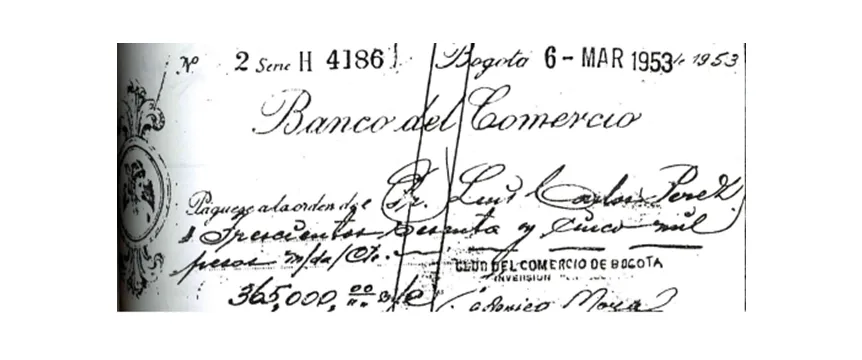 Nº 2 Serie H 4186 Bogotá 6 - MAR 1953 de 1953
Banco del Comercio
Páguese a la orden de Dr. Luis Carlos Perez
Trescientos Sesenta y Cinco mil
pesos m/da/Cte.
CLUB DEL COMERCIO DE BOGOTA
INVERSION
365,000,00